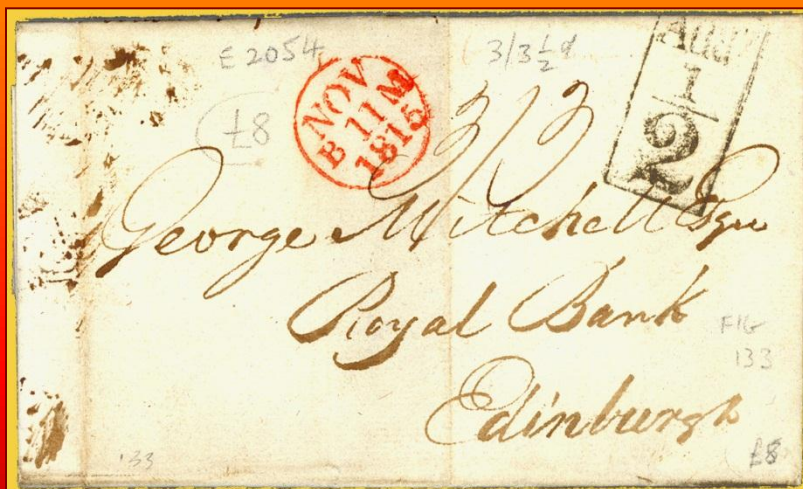 E 2054
3/3½d
£8
NOV
B 11 M
1815
Add
1/2
3/3
George Mitchell Esqr
Royal Bank
Edinburgh
FIG
133
133
£8